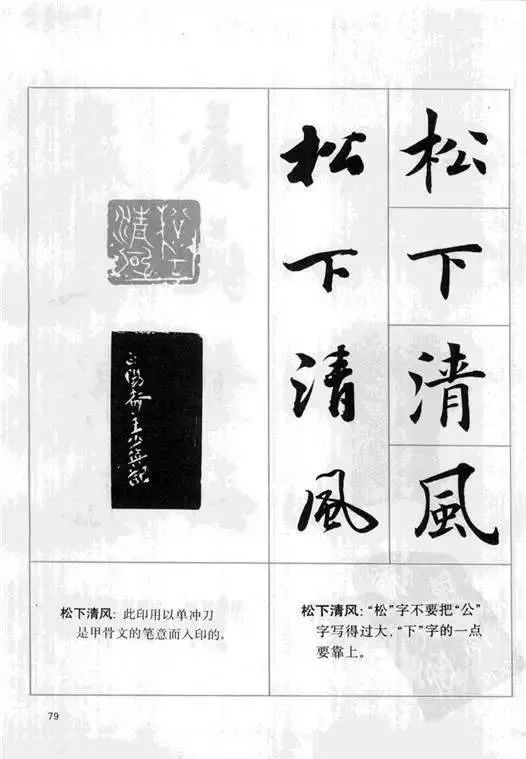 松下清風
松下清風
松下清風
松下清风：此印用以单冲刀
是甲骨文的笔意而入印的。
松下清风：“松”字不要把“公”
字写得过大，“下”字的一点
要靠上。
79